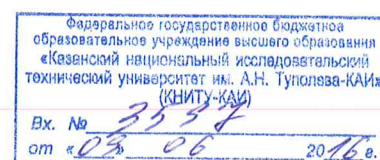 Федеральное государственное бюджетное
образовательное учреждение высшего образования
«Казанский национальный исследовательский
технический университет им. А.Н. Туполева-КАИ»
(КНИТУ-КАИ)
Вх. №
от «03» 06 2016 г.